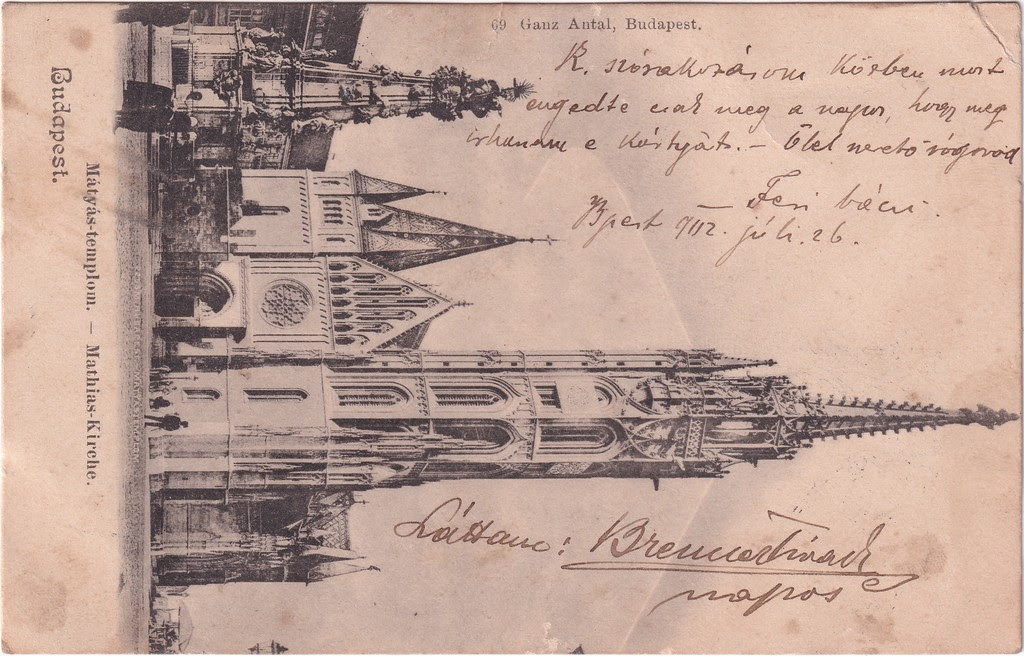 69 Ganz Antal, Budapest.
K. szórakozásom közben most
engedte csak meg a napos, hogy meg
irhanám e kártyát. – Ölel szerető sógorod
– Feri bácsi.
Bpest 902. júli. 26.
Budapest.
Mátyás-templom. – Mathias-Kirche.
Láttam:
napos